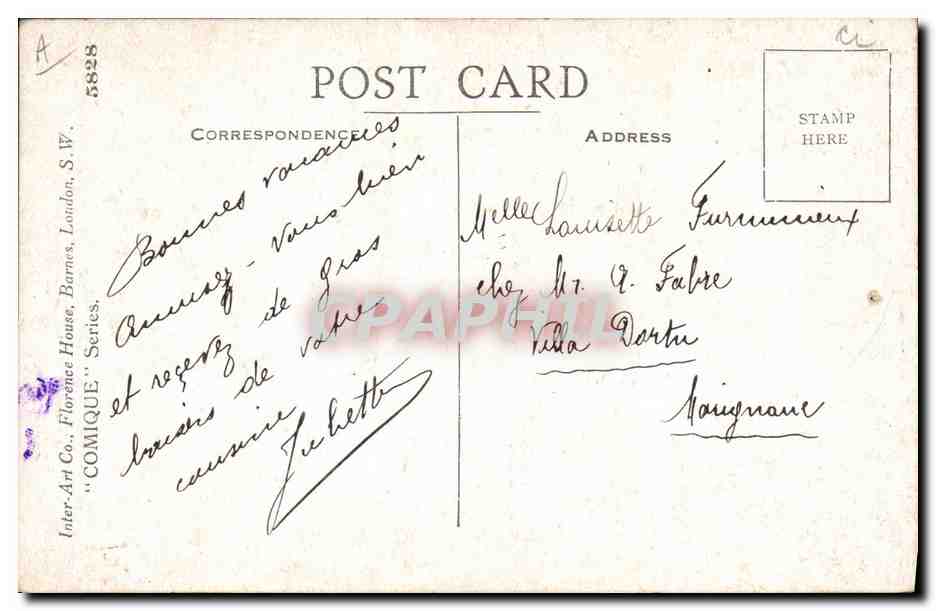 A
Ci
POST CARD
CORRESPONDENCE
ADDRESS
STAMP
HERE
Bonnes vacances
amusez-vous bien
et reçevez de gros
baisers de votre
cousine
Juliette
Melle Louisette Furnimieux
chez Mr. A. Fabre
Villa Dortu
Marignane
Inter-Art Co., Florence House, Barnes, London, S.W.
"COMIQUE" Series.
5828
CPAPHIL